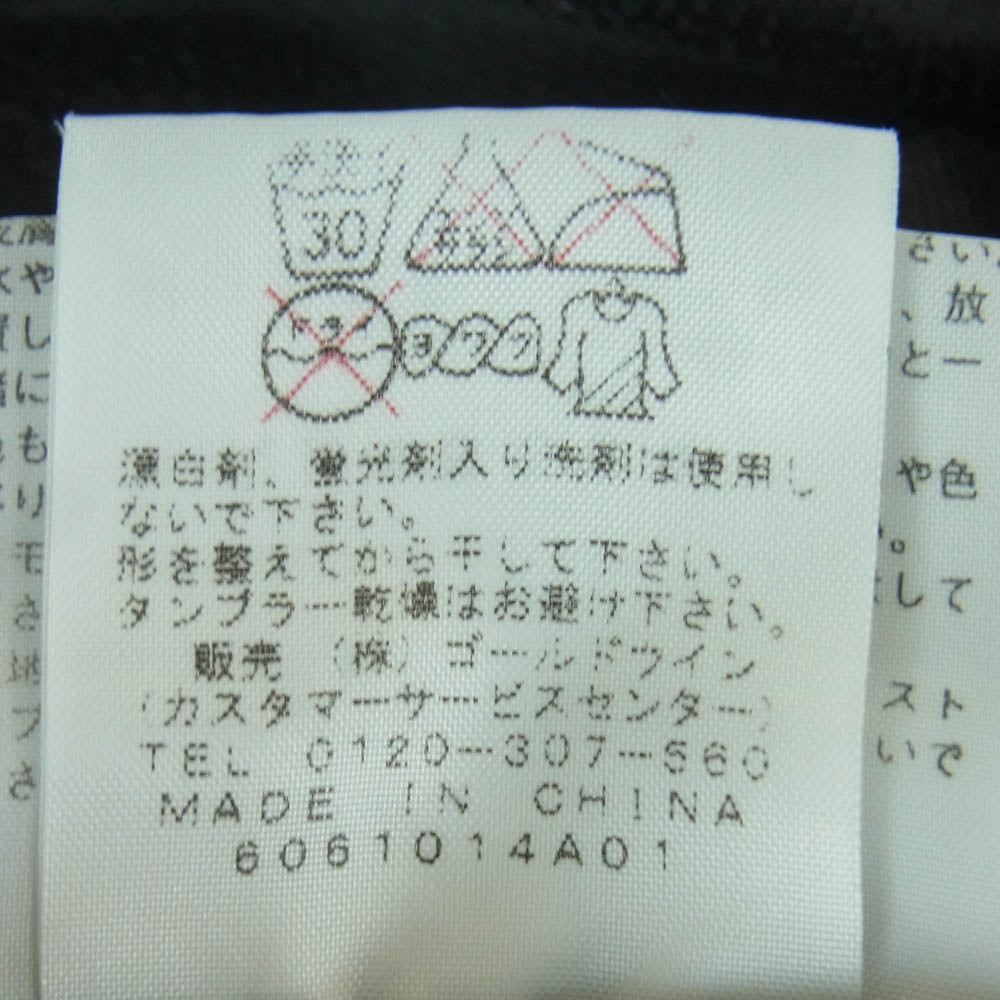 30
ドライ
ヨワク
漂白剤、蛍光剤入り洗剤は使用し
ないで下さい。
形を整えてから干して下さい。
タンブラー乾燥はお避け下さい。
販売 (株)ゴールドウイン
(カスタマーサービスセンター)
TEL 0120-307-560
MADE IN CHINA
6061014A01
さい
、放
と一
や色
。
して
スト
いで